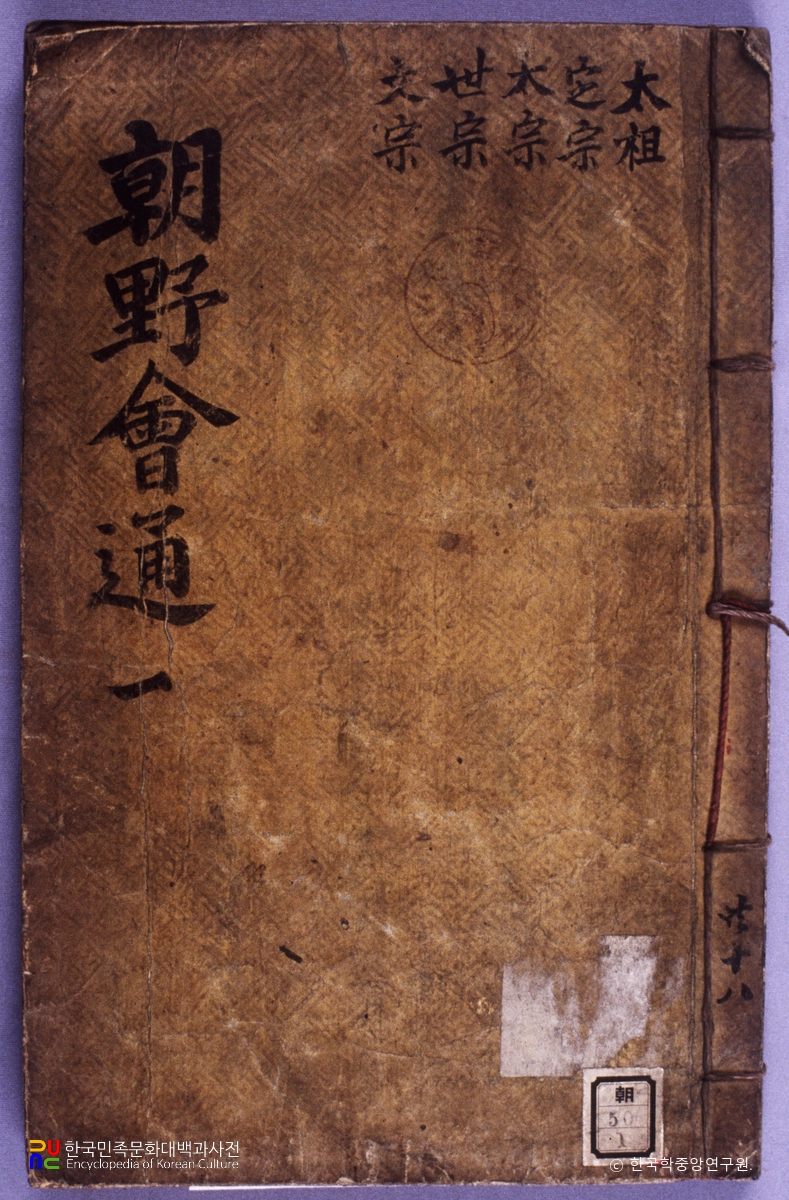 太祖
定宗
太宗
世宗
文宗
朝野會通 一
共十八
朝
50
1
한국민족문화대백과사전
Encyclopedia of Korean Culture
© 한국학중앙연구원